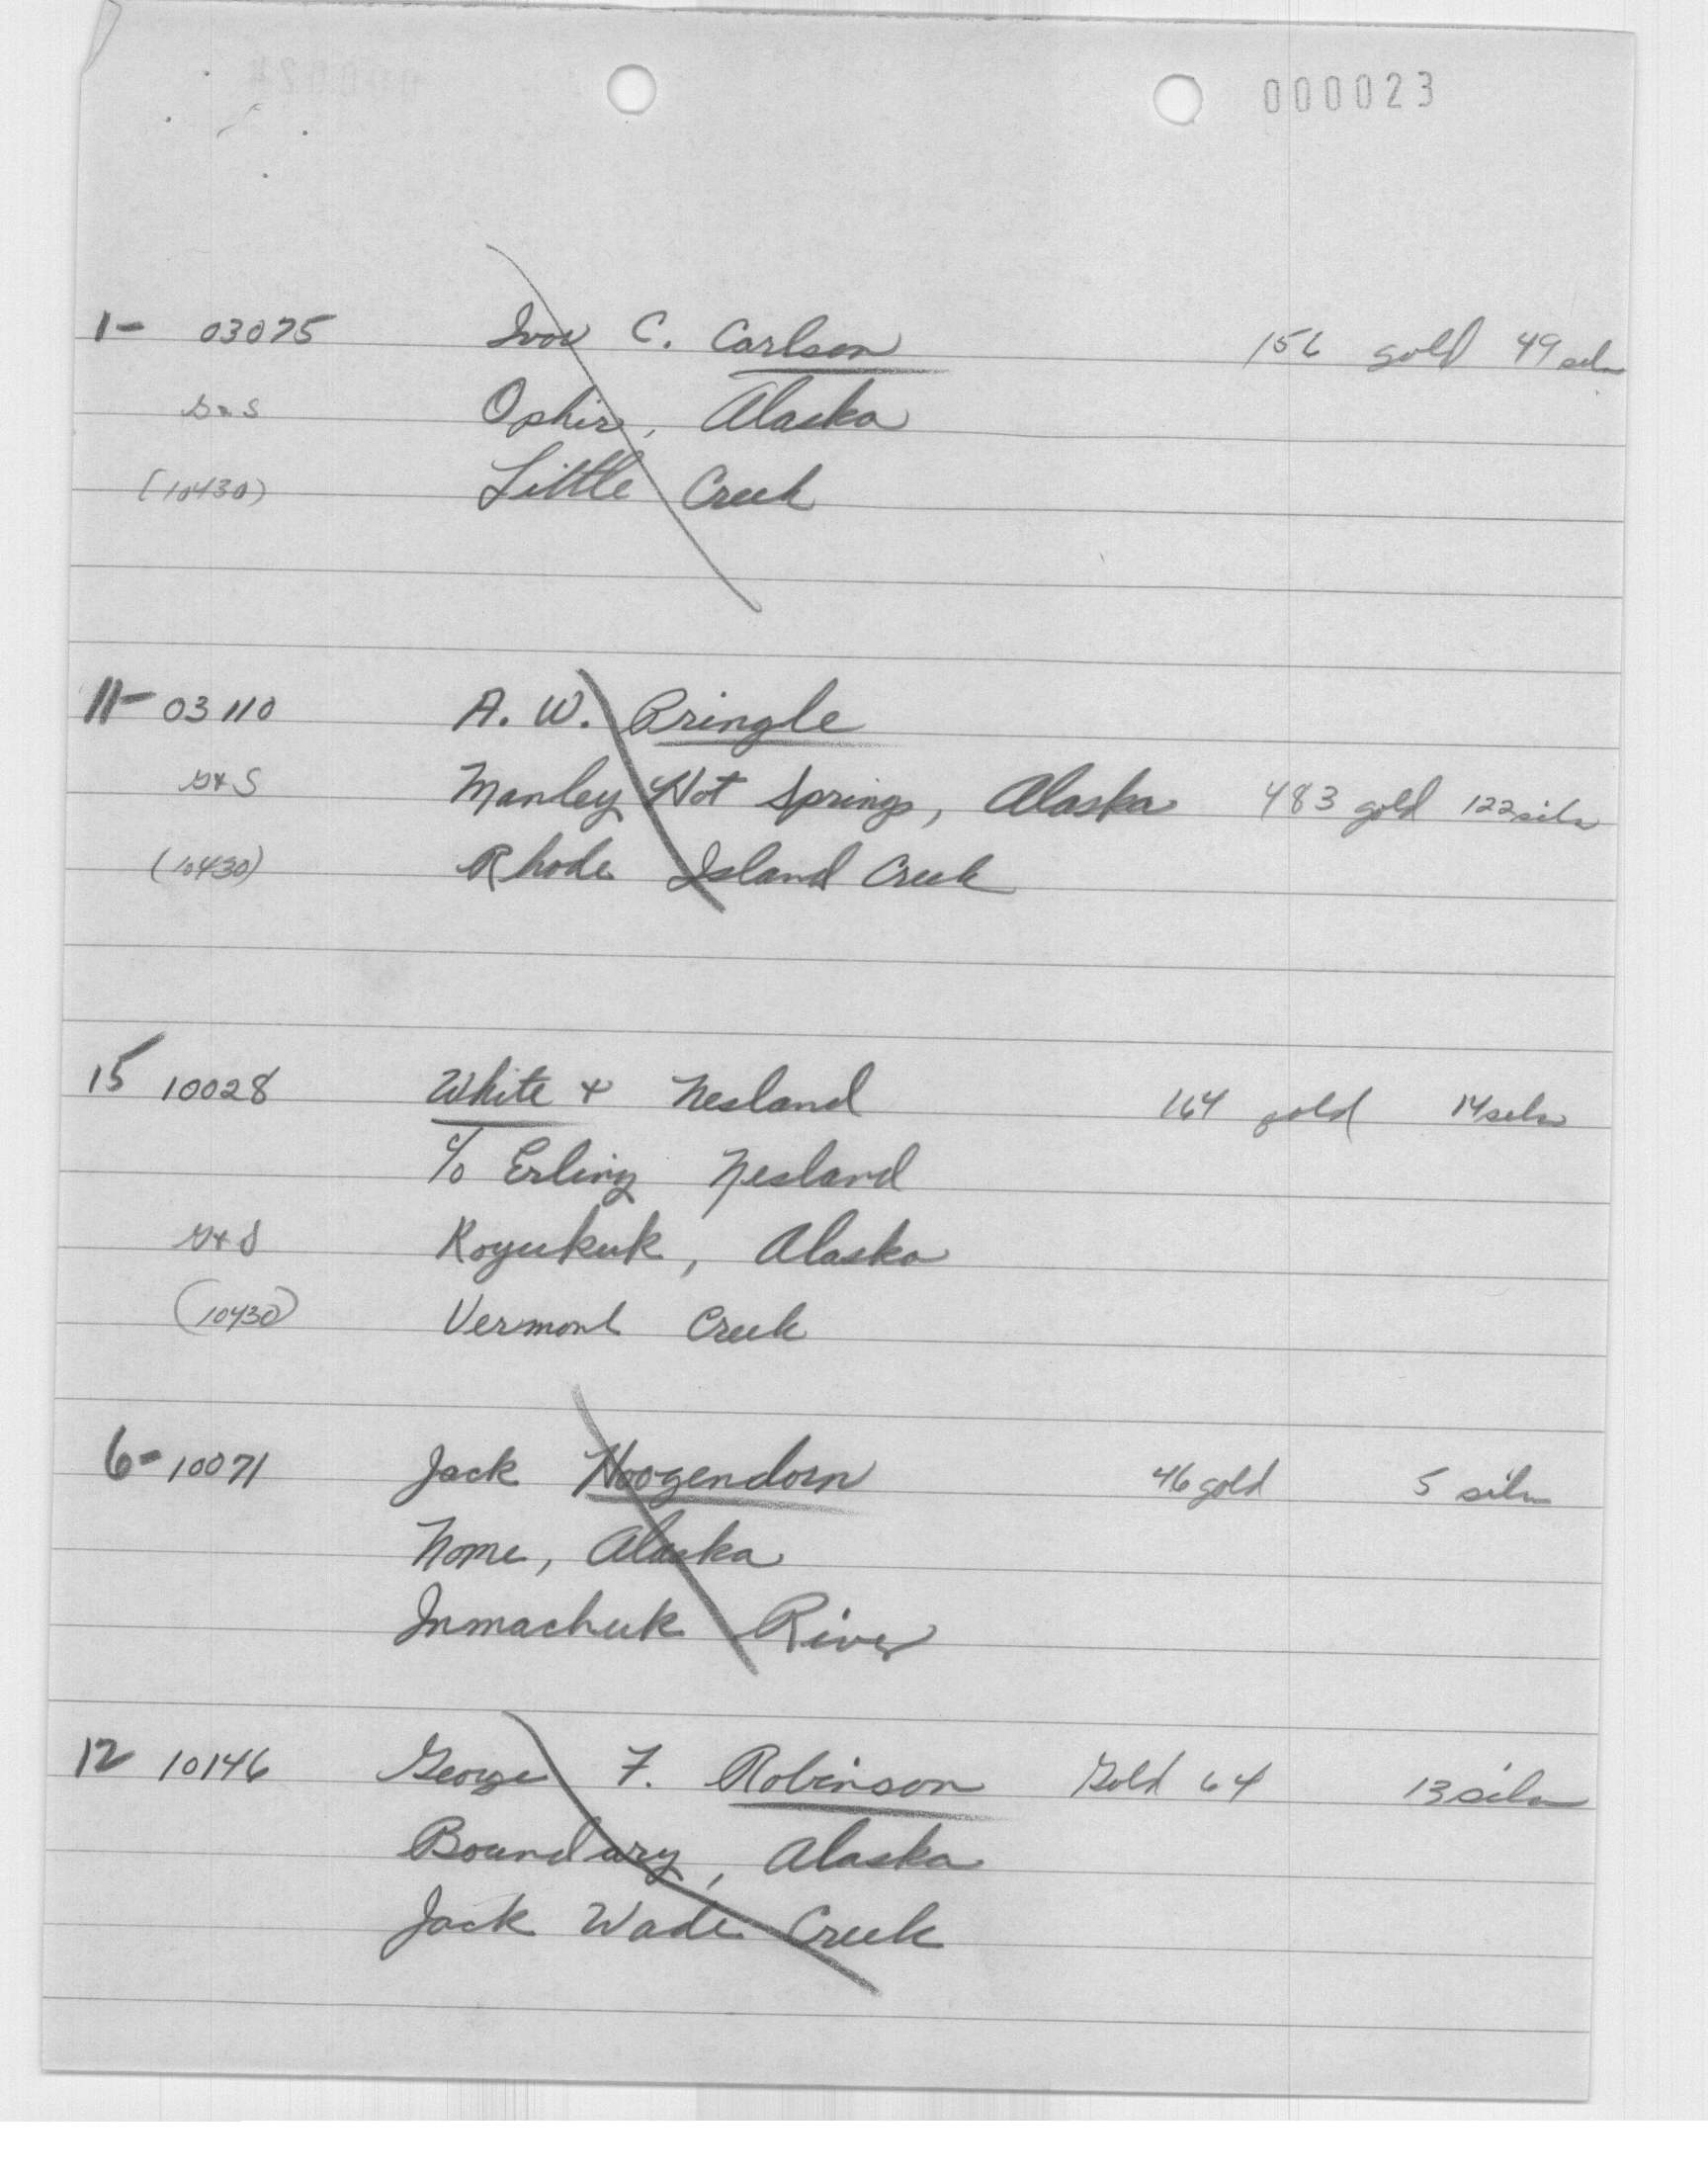 000023
1- 03075 Ivor C. Carlson 156 gold 49 silv
G & S Ophir, Alaska
(10430) Little Creek
11- 03110 A. W. Pringle
G & S Manley Hot Springs, Alaska 483 gold 122 silv
(10430) Rhode Island Creek
15 10028 White + Nesland 164 gold 14 silv
c/o Erling Nesland
G + S Koyukuk, Alaska
(10430) Vermont Creek
6- 10071 Jack Hoogendorn 46 gold 5 silv
Nome, Alaska
Inmachuk River
12 10146 George F. Robinson Gold 64 13 silv
Boundary, Alaska
Jack Wade Creek